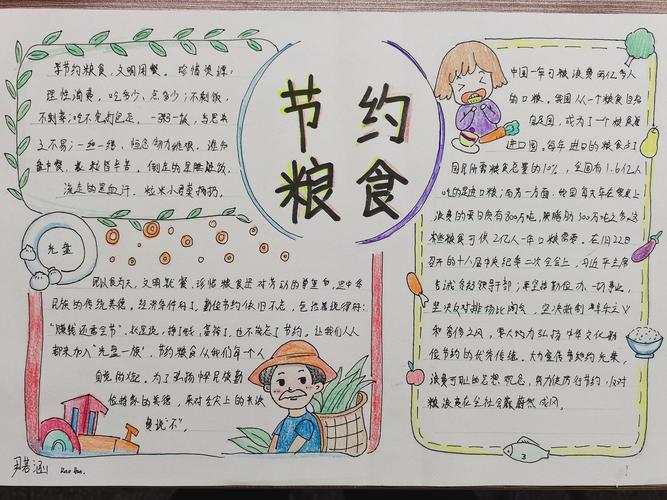 节约
粮食
享节约粮食,文明用餐。珍惜资源,
理性消费。吃多少,点多少;不剩饭,
不剩菜;吃不完打包走。一粥一饭,当思来
之不易;一丝一缕,恒念物力维艰。谁知
盘中餐,粒粒皆辛苦。倒下的是剩菜饭,
流走的是血汗。粒米
光盘
民以食为天,文明就餐、珍惜粮食是对劳动的尊重也是中华
民族的传统美德。经济条件好了,勤俭节约依旧不忘,
就是说,挣了钱,富裕了,也不能忘了节约。让我们人人
都来加入“光盘一族”,节约粮食从我们每个人
自觉做起。为了弘扬中华民族勤
俭持家的美德,来对舌尖上的浪费
勇说“不”。
中国一年可粮浪费两亿多人
的口粮。我国从一个粮食自给
自足国,成为了一个粮食最
进口国。每年进口的粮食占了
国民所需粮食总量的10%,全国有1.6亿人
吃的是进口粮;而另一方面,中国每年在餐桌上
浪费的蛋白质有800万吨,脂肪300万吨之多。这
些粮食可供2亿人一年口粮需要。在1月22日
召开的十八届中央纪委二次全会上,习近平主席
告诫各级领导干部:要坚持勤俭办一切事业,
坚决反对讲排场比阔气,坚决抵制享乐主义
和奢侈之风。要大力弘扬中华文化勤
俭节约的优秀传统。大力宣传节约光荣、
浪费可耻的思想观念,努力使厉行节约、反对
粮浪费在全社会蔚然成风。
3